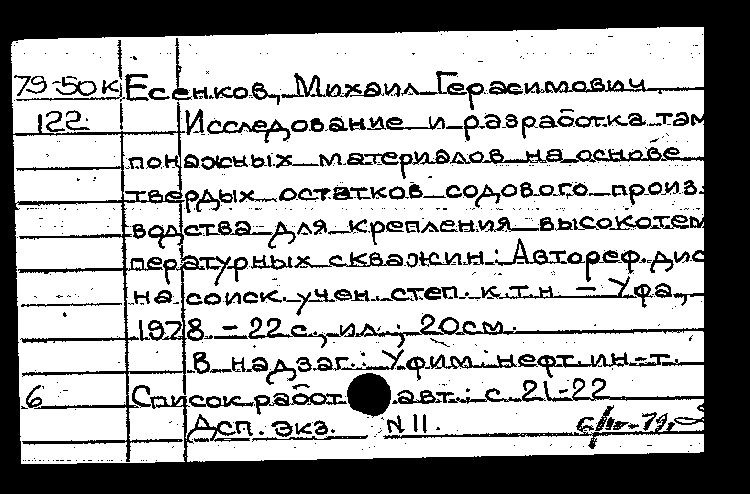 79-50к Есенков, Михаил Герасимович.
122 Исследование и разработка там
понажных материалов на основе
твердых остатков содового произ-
водства для крепления высокотем
пературных скважин: Автореф. дис
на соиск. учен. степ. к.т.н. – Уфа,
1978. – 22 с., ил.; 20см.
В надзаг.: Уфим. нефт. ин-т.
6 Список работ авт.: с. 21-22
Дсп. экз. N 11.